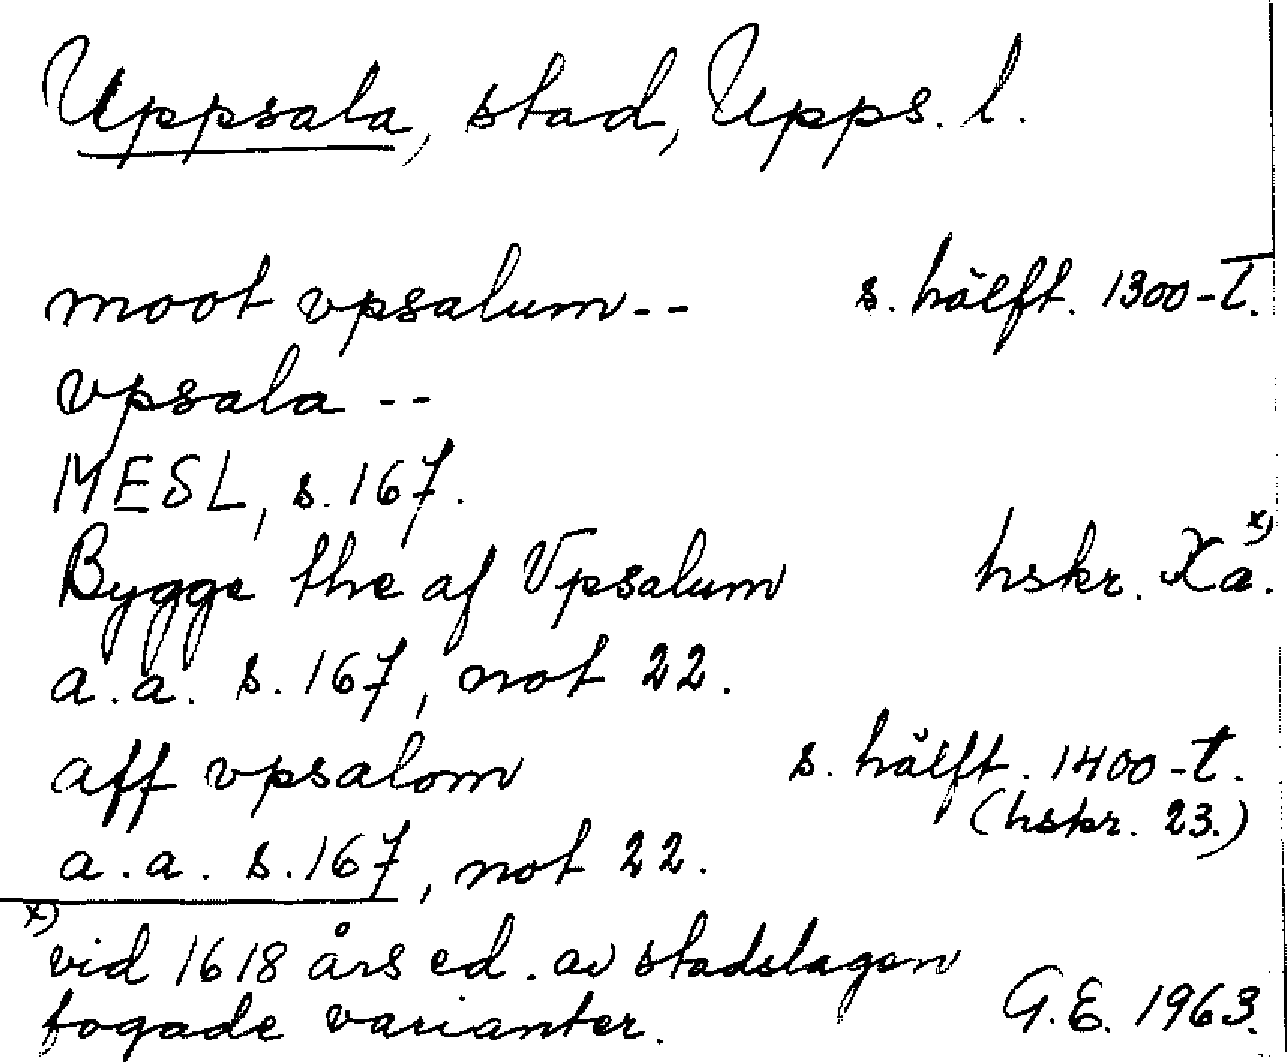 Uppsala, stad, Upps. l.
moot vpsalum -- s. hälft. 1300-t.
vpsala --
MESL, s. 167.
Bygge the af Vpsalum hskr. Xa. x)
a.a. s. 167, not 22.
aff vpsalom s. hälft. 1400-t.
(hskr. 23.)
a.a. s. 167, not 22.
x) vid 1618 års ed. av stadslagen
fogade varianter. G.E. 1963.